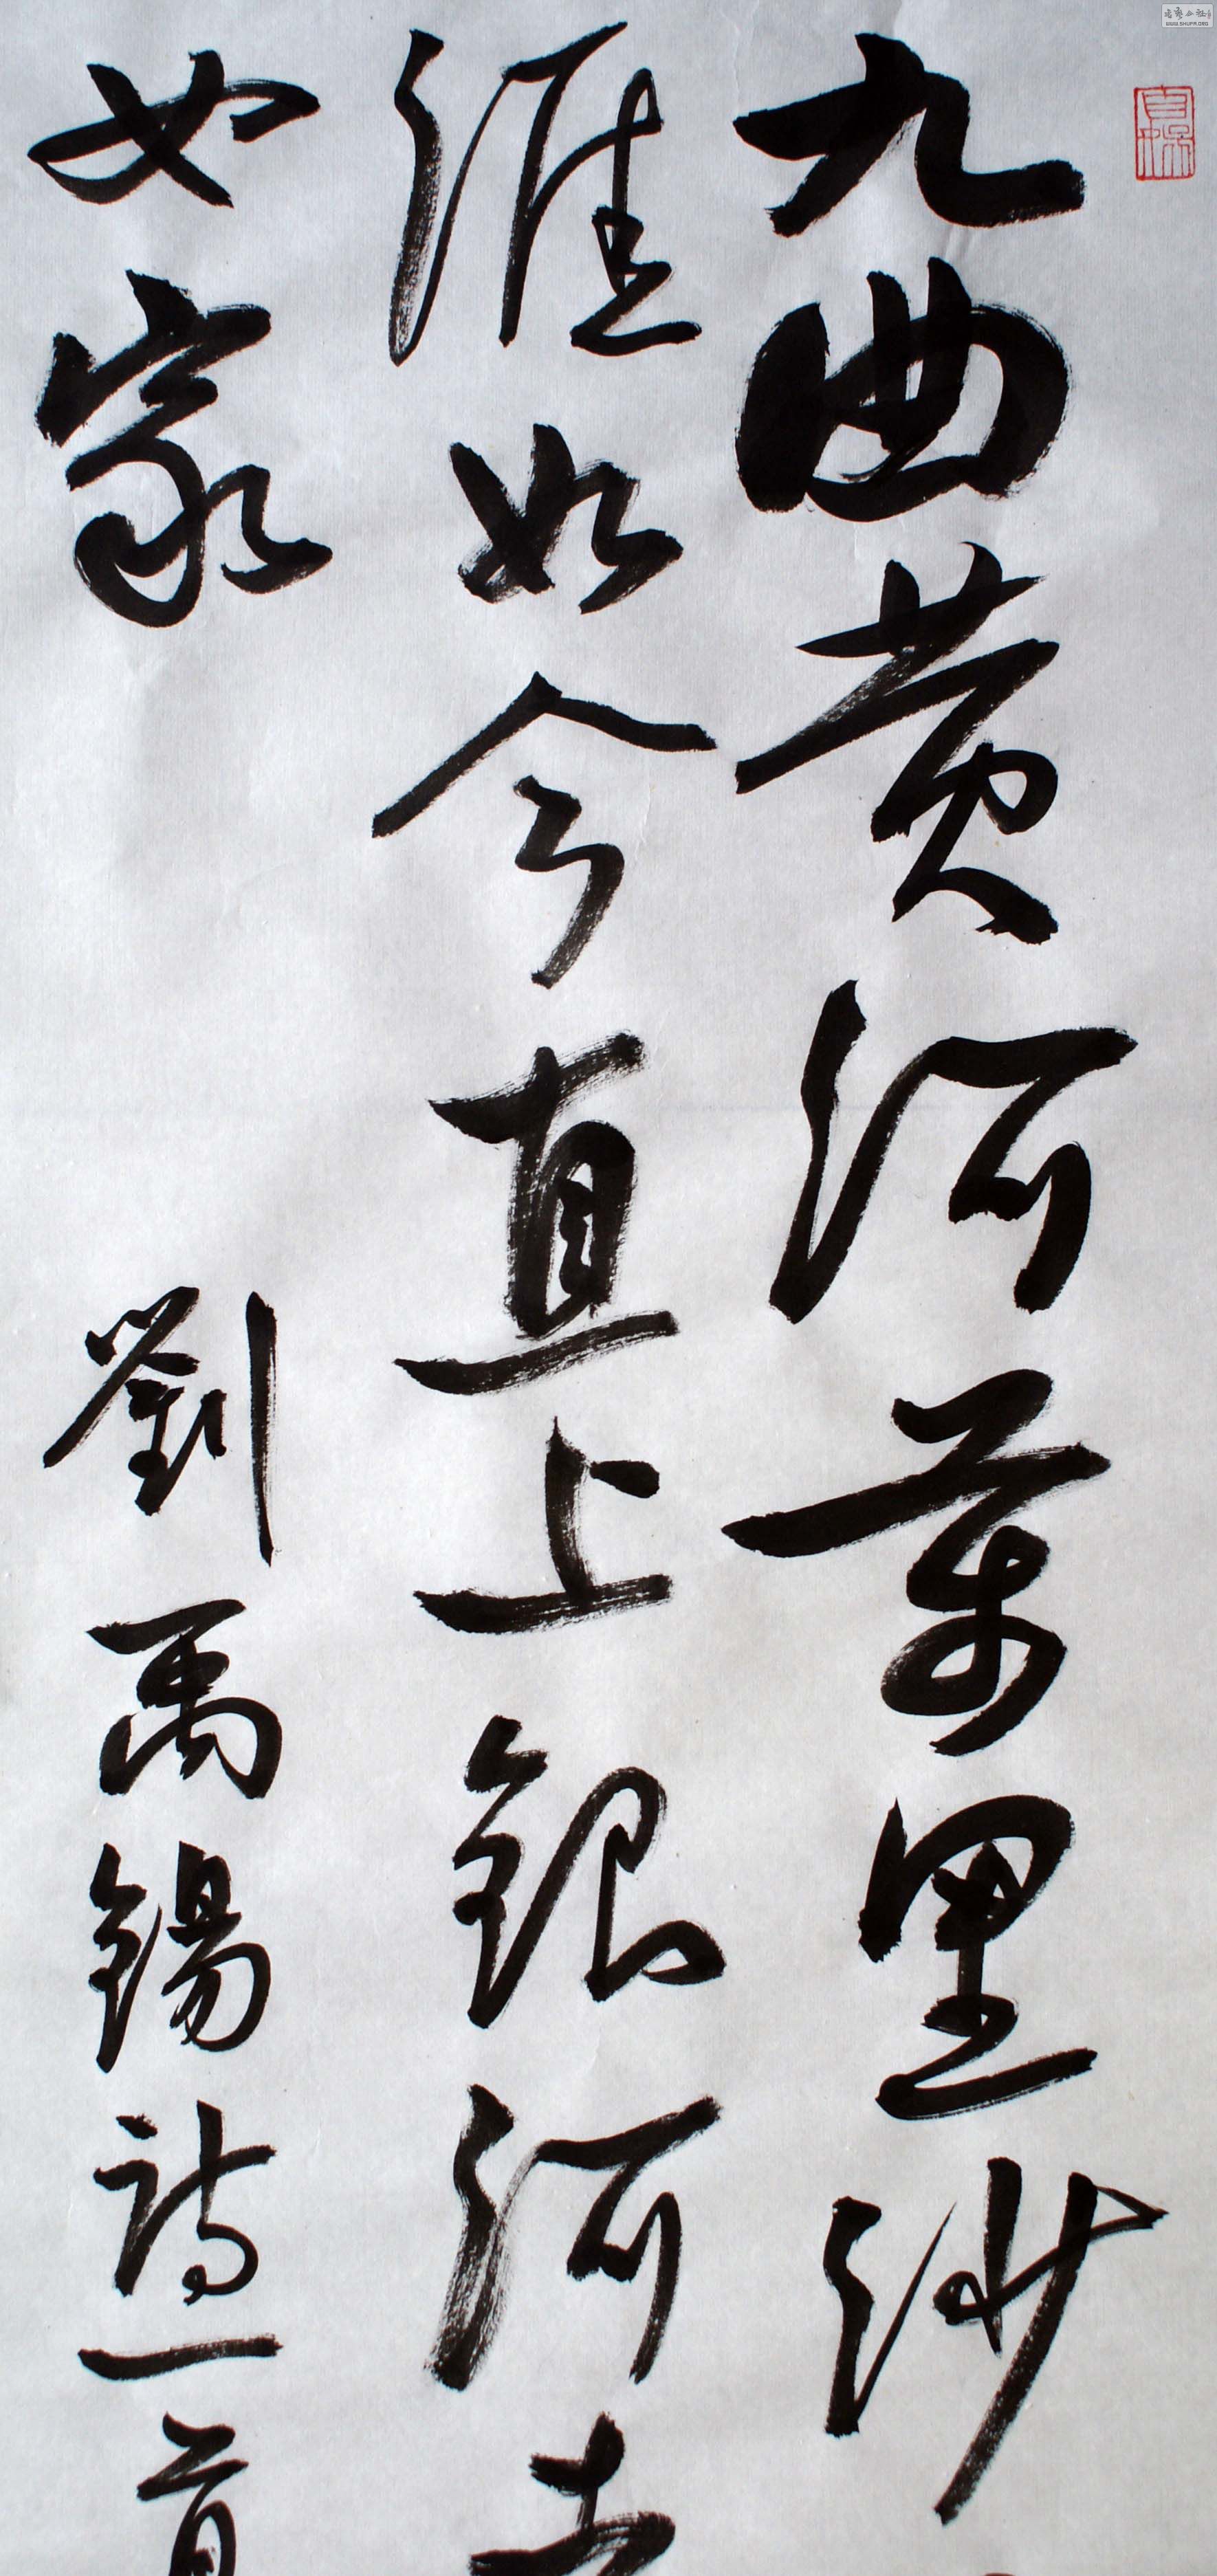 九曲黄河万里沙
涯如今直上银河去
女家
劉禹錫詩一首
WWW.SHUFA.ORG